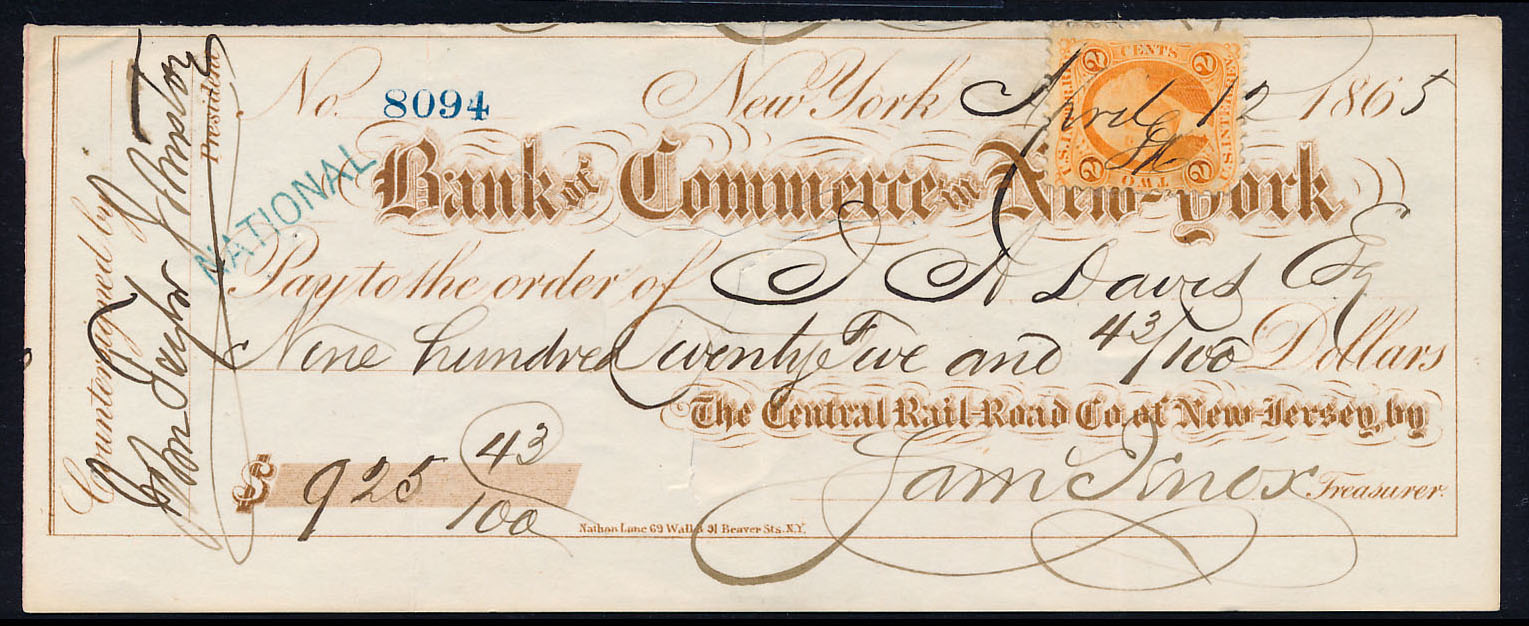 No. 8094 New York April 12 1865
U.S. INTER. REV. 2 CENTS 2 U.S. INTER. REV. 2 TWO 2
NATIONAL
Bank of Commerce in New-York.
Pay to the order of J A Davis Esq
Nine hundred Twenty Five and 43/100 Dollars
The Central Rail-Road Co. of New-Jersey, by
$ 925 43/100
Saml Knox Treasurer.
Nathan Lane 69 Wall & 91 Beaver Sts. N.Y.
Countersigned by
J Johnston President